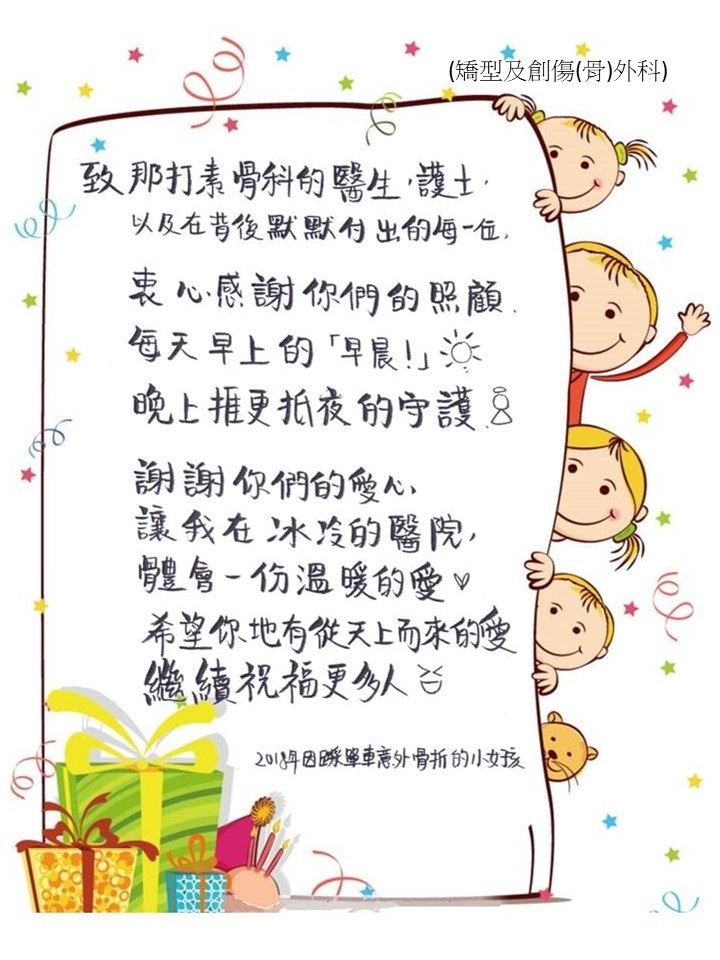 (矯型及創傷(骨)外科)
致那打素骨科的醫生,護士,
以及在背後默默付出的每一位,
衷心感謝你們的照顧.
每天早上的「早晨!」
晚上捱更抵夜的守護.
謝謝你們的愛心,
讓我在冰冷的醫院,
體會一份溫暖的愛♥
希望你地有從天上而來的愛
繼續祝福更多人
2018年因踩單車意外骨折的小女孩